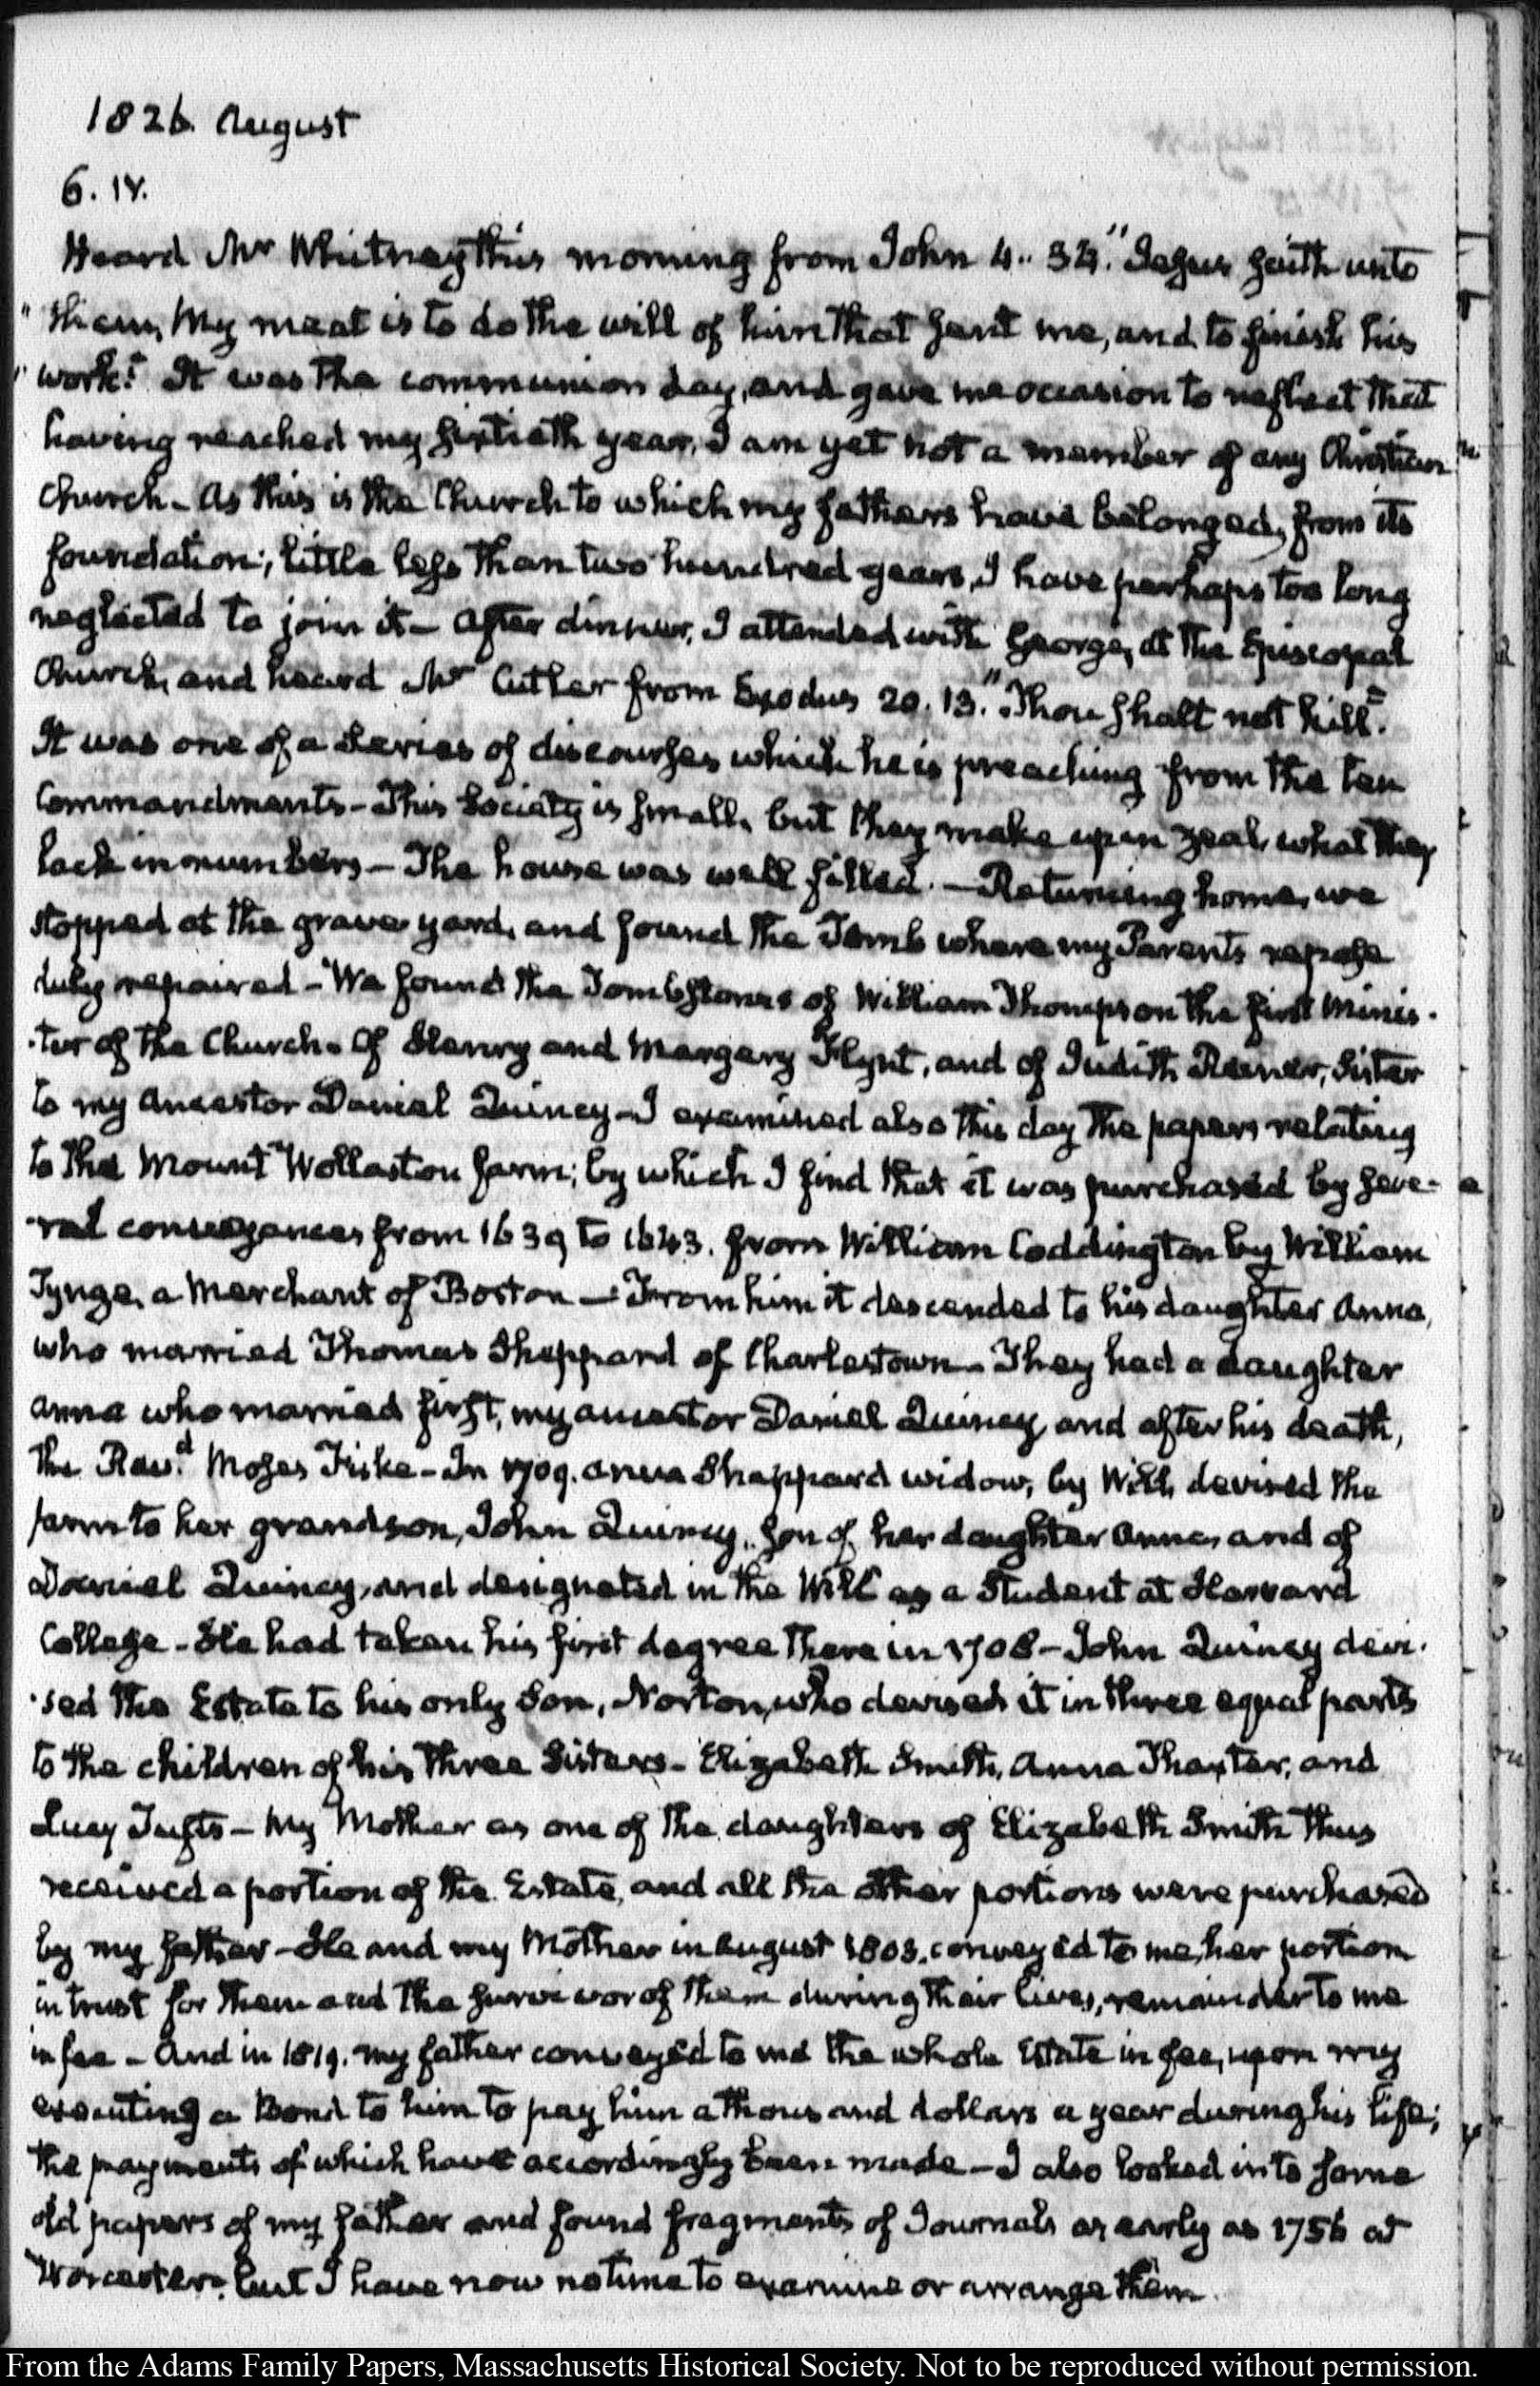 1826. August
6. IV.
Heard Mr Whitney this morning from John 4. 34. "Jesus saith unto
"them, My meat is to do the will of him that sent me, and to finish his
"work." It was the communion day, and gave me occasion to reflect that
having reached my sixtieth year, I am yet not a member of any Christian
Church - As this is the Church to which my fathers have belonged, from its
foundation; little less than two hundred years, I have perhaps too long
neglected to join it - After dinner, I attended with George, at the Episcopal
Church, and heard Mr Cutler from Exodus 20. 13. "Thou shalt not kill".
It was one of a Series of discourses which he is preaching from the ten
Commandments - This Society is small, but they make up in zeal, what they
lack in numbers - The house was well filled. - Returning home, we
stopped at the grave yard, and found the Tomb where my Parents repose
duly repaired - We found the Tombstones of William Thompson the first Minis-
-ter of the Church - Of Henry and Margery Flynt, and of Judith Reyner, Sister
to my Ancestor Daniel Quincy - I examined also this day the papers relating
to the Mount Wollaston farm; by which I find that it was purchased by seve-
-ral conveyances from 1639 to 1643. from William Coddington by William
Tynge, a Merchant of Boston - From him it descended to his daughter Anna,
who married Thomas Sheppard of Charlestown - They had a daughter
Anna who married first, my ancestor Daniel Quincy, and after his death,
the Revd. Moses Fiske - In 1709. Anna Sheppard widow, by Will, devised the
farm to her grandson, John Quincy, son of her daughter Anna, and of
Daniel Quincy, and designated in the Will as a Student at Harvard
College - He had taken his first degree there in 1708 - John Quincy devi-
-sed the Estate to his only Son, Norton, who devised it in three equal parts
to the children of his three Sisters - Elizabeth Smith, Anna Thaxter, and
Lucy Tufts - My Mother as one of the daughters of Elizabeth Smith thus
received a portion of the Estate, and all the other portions were purchased
by my father - He and my Mother in August 1803. conveyed to me, her portion
in trust for them and the survivor of them during their lives, remainder to me
in fee - And in 1819. my father conveyed to me the whole Estate in fee, upon my
executing a Bond to him to pay him a thousand dollars a year during his life;
the payments of which have accordingly been made - I also looked into some
old papers of my father and found fragments of Journals as early as 1756 at
Worcester. but I have now no time to examine or arrange them.
From the Adams Family Papers, Massachusetts Historical Society. Not to be reproduced without permission.